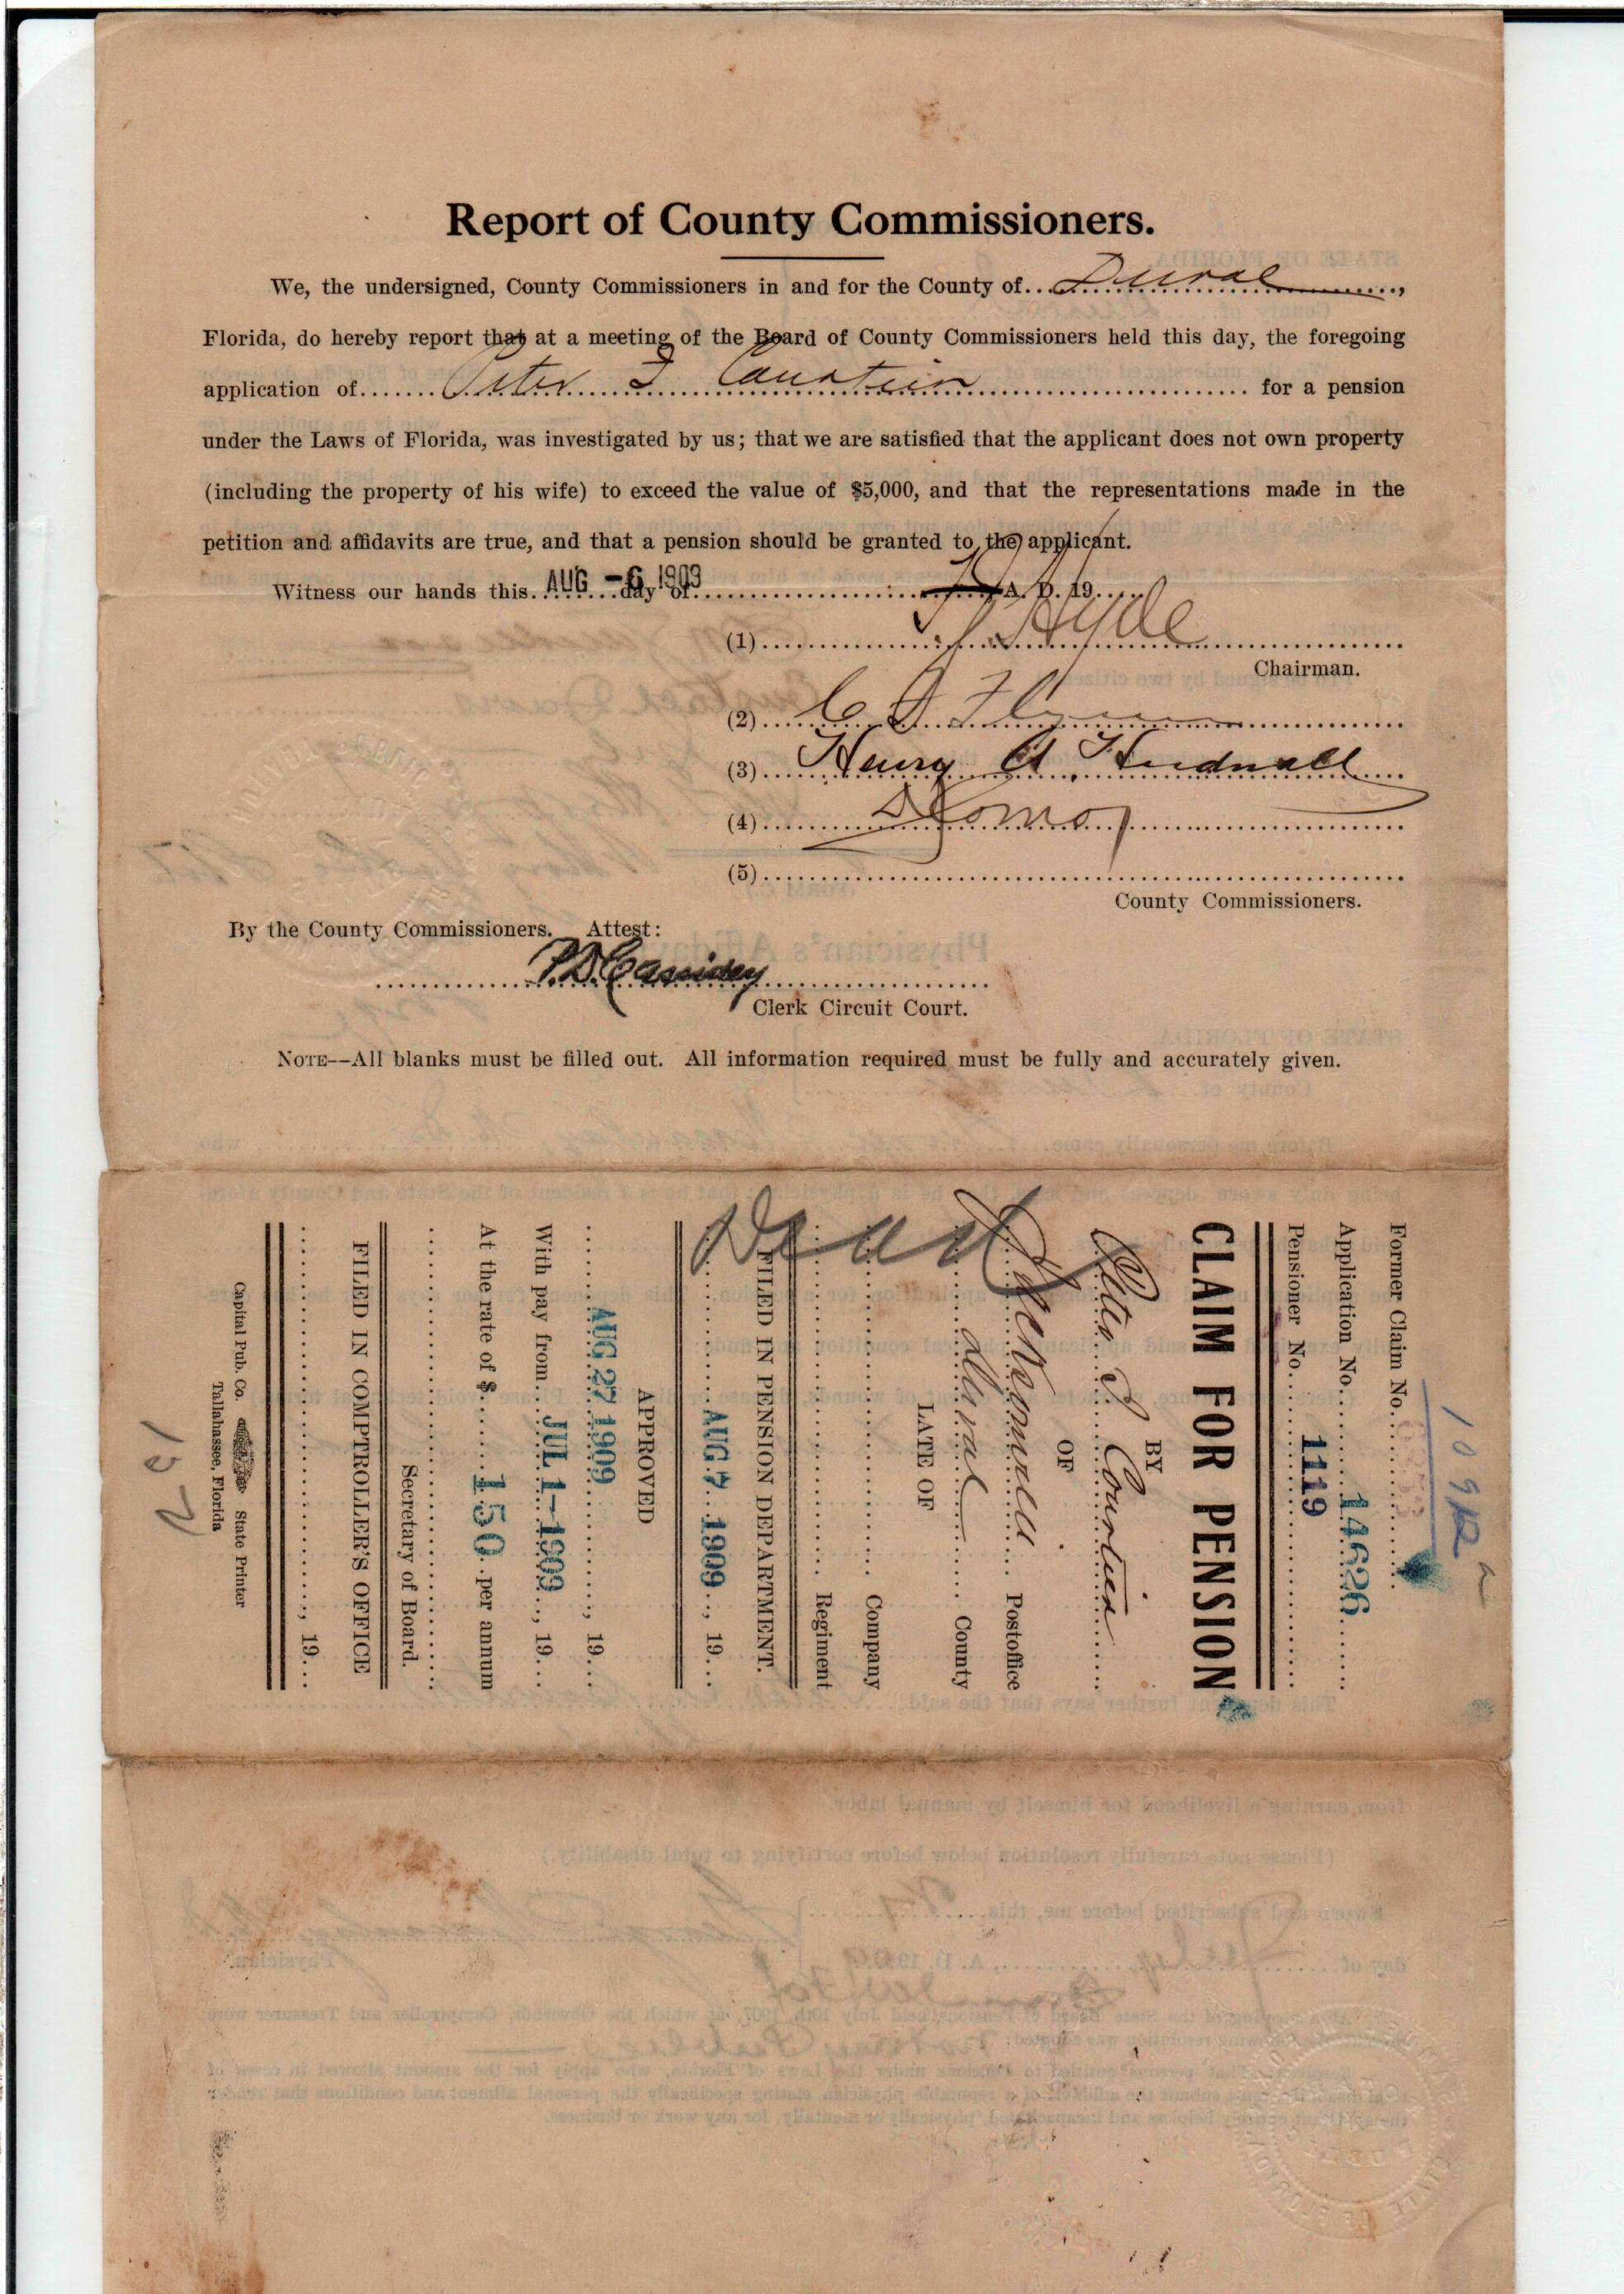 Report of County Commissioners.
We, the undersigned, County Commissioners in and for the County of Duval,
Florida, do hereby report that at a meeting of the Board of County Commissioners held this day, the foregoing
application of Peter for a pension
under the Laws of Florida, was investigated by us; that we are satisfied that the applicant does not own property
(including the property of his wife) to exceed the value of $5,000, and that the representations made in the
petition and affidavits are true, and that a pension should be granted to the applicant.
Witness our hands this AUG -6 1909 day of A. D. 19
(1) Hyde
Chairman.
(2) C
(3) Henry A. Hudnall
(4)
(5)
County Commissioners.
By the County Commissioners. Attest:
P.D. Cassidey
Clerk Circuit Court.
NOTE--All blanks must be filled out. All information required must be fully and accurately given.
Former Claim No.
Application No. 14626
Pensioner No. 1119
CLAIM FOR PENSION
BY
Peter
OF
Jacksonville Postoffice
Duval County
LATE OF
Company
Regiment
Dead
FILED IN PENSION DEPARTMENT.
AUG 7 1909, 19
APPROVED
AUG 27 1909, 19
With pay from JUL 1-1909, 19
At the rate of $ 150 per annum
Secretary of Board.
FILED IN COMPTROLLER'S OFFICE
, 19
Capital Pub. Co. State Printer
Tallahassee, Florida